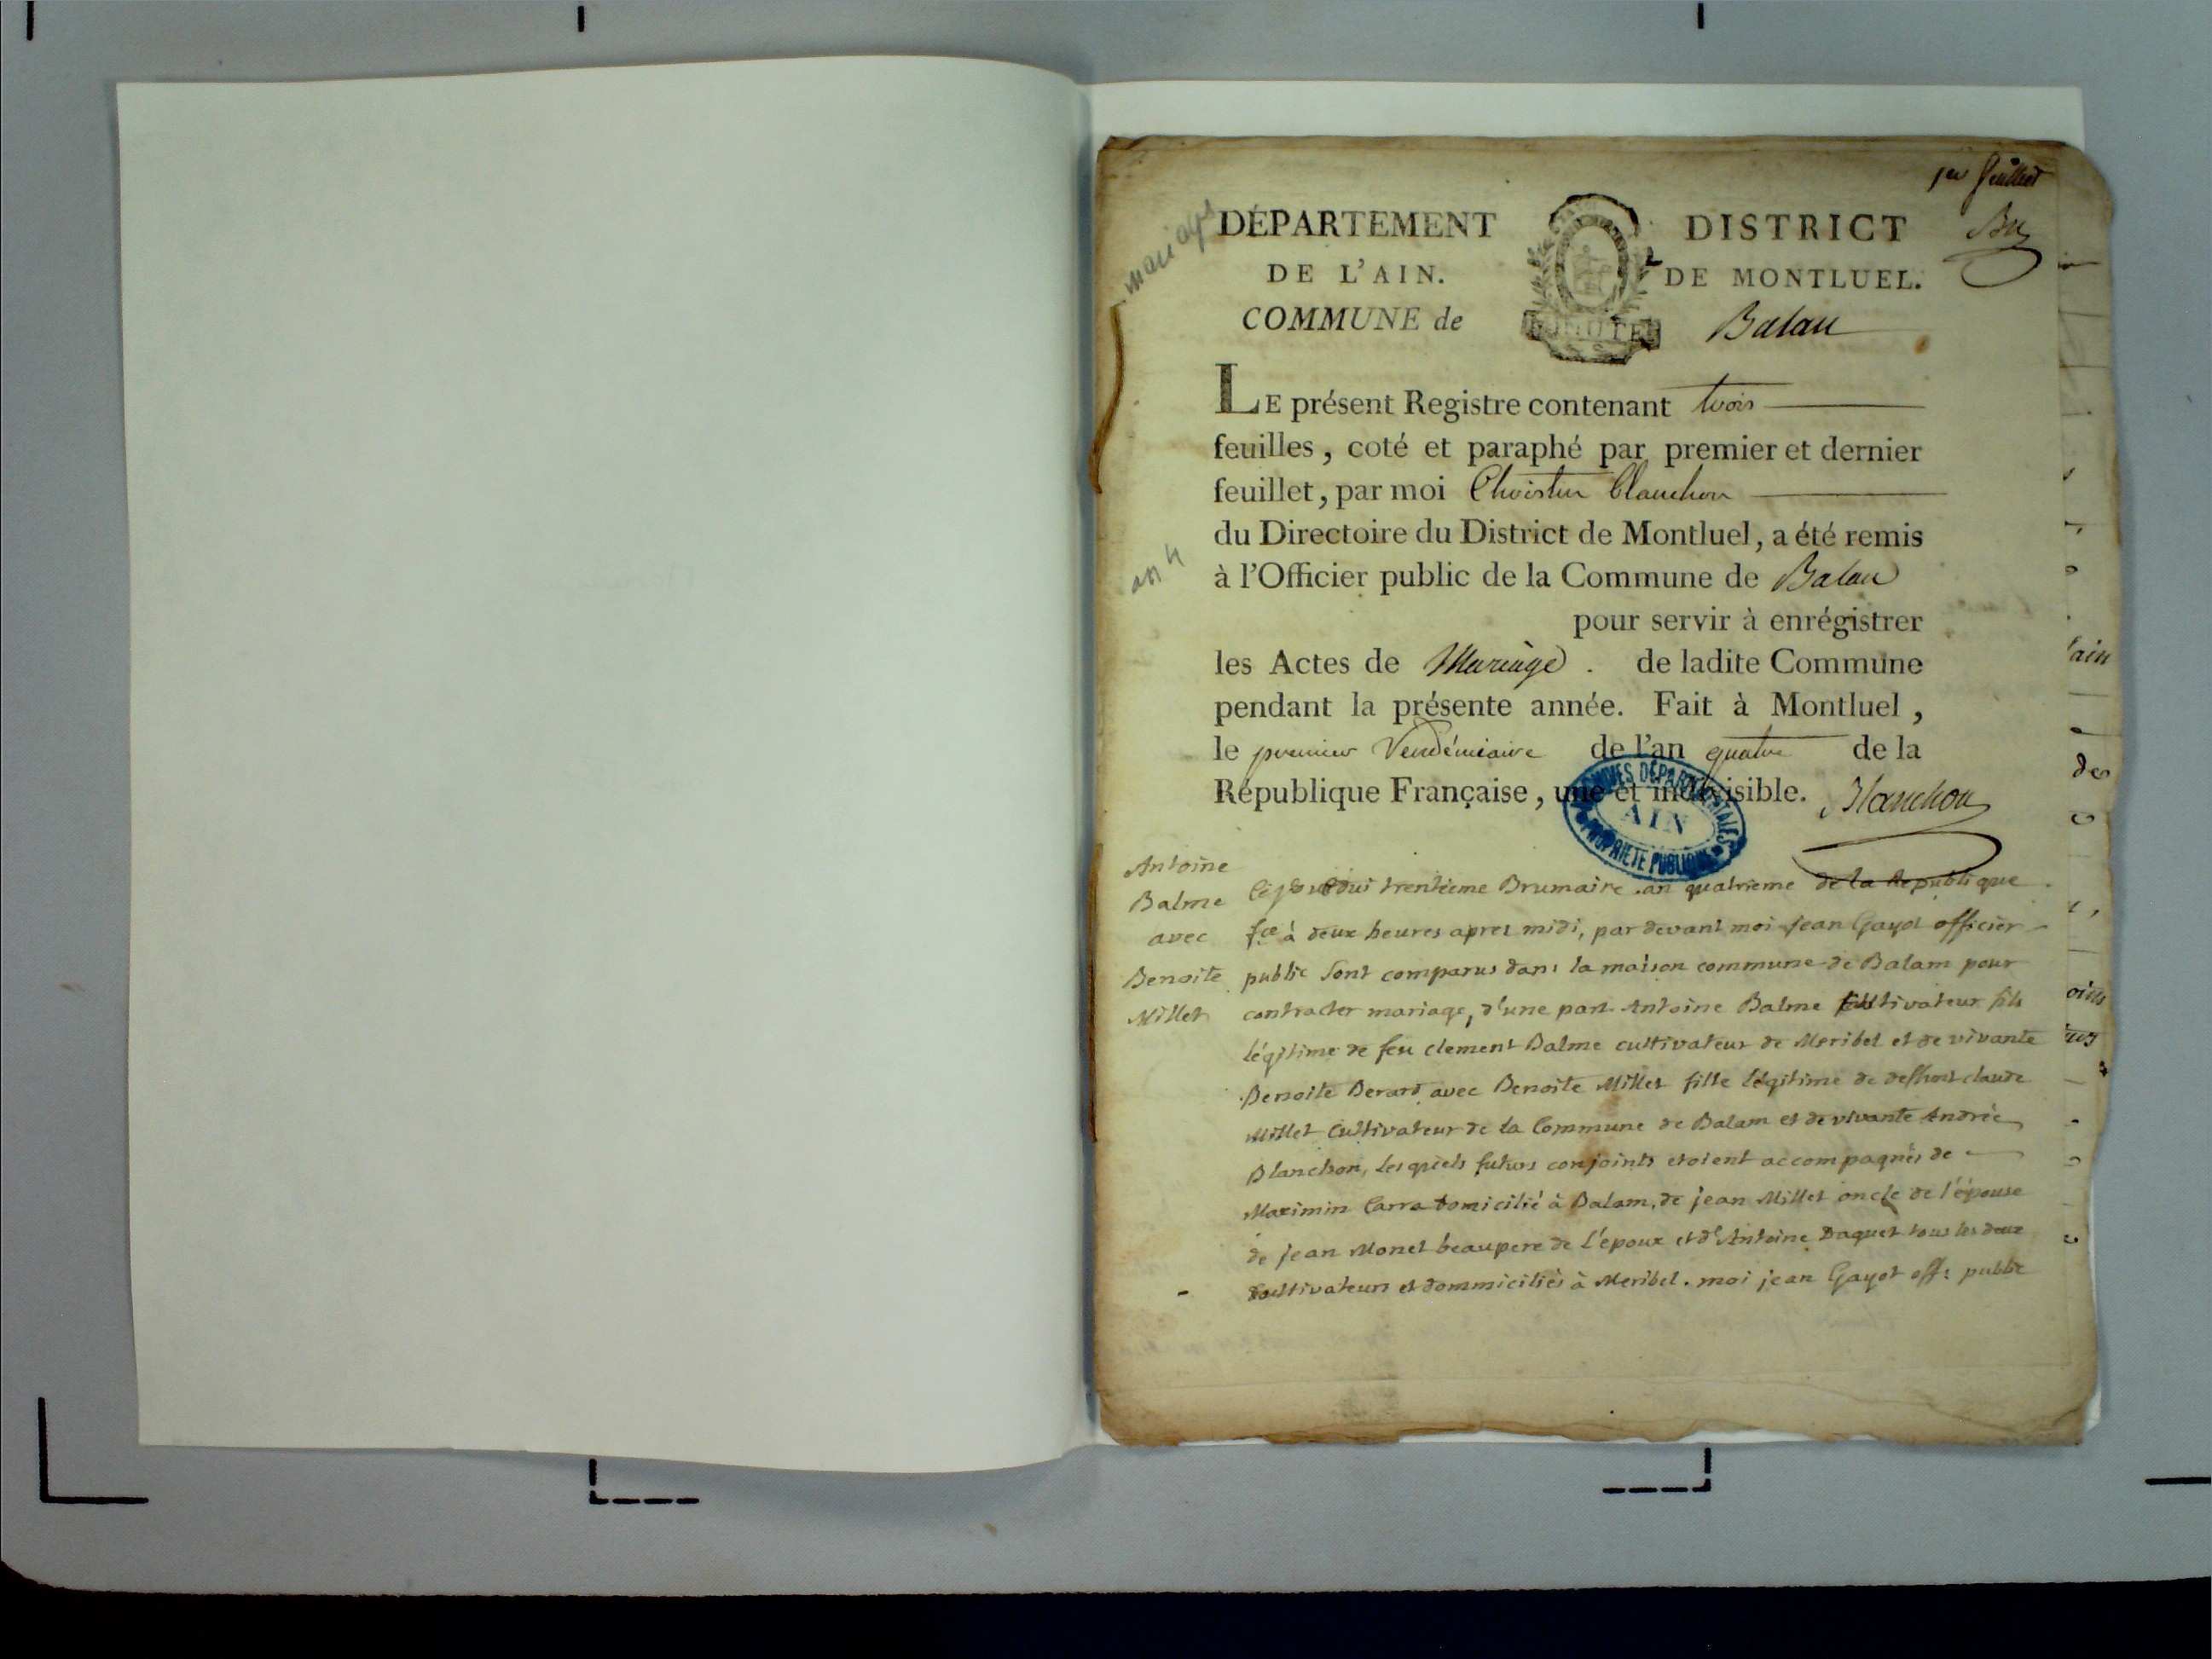 1er feuillet
mariages
DÉPARTEMENT
DE L'AIN.
COMMUNE de
DISTRICT
DE MONTLUEL.
Balan
LE présent Registre contenant trois
feuilles, coté et paraphé par premier et dernier
feuillet, par moi Blanchon
du Directoire du District de Montluel, a été remis
an 4
à l'Officier public de la Commune de Balan
pour servir à enrégistrer
les Actes de Mariage. de ladite Commune
pendant la présente année. Fait à Montluel,
le premier Vendémiaire de l'an quatre de la
République Française, une et indivisible. Blanchon
ARCHIVES DÉPARTEMENTALES
AIN
PROPRIÉTÉ PUBLIQUE
Antoine
Balme
avec
Benoite
Millet
trentieme Brumaire an quatrieme de la Republique
fce à deux heures apres midi, par devant moi jean Gayot officier
public sont comparus dans la maison commune de Balam pour
contracter mariage, d'une part Antoine Balme cultivateur fils
légitime de feu clement Balme cultivateur de Meribel et de vivante
Benoite Berard avec Benoite Millet fille légitime de deffunt claude
Millet Cultivateur de la Commune de Balam et de vivante Andrée
Blanchon, les quels futurs conjoints etoient accompagnés de
Maximin Carra domicilié à Balam, de jean Millet oncle de l'épouse
de jean Monet beaupere de l'époux et d'Antoine Daquet tous les deux
cultivateurs et dommiciliés à Meribel. moi jean Gayot off: public